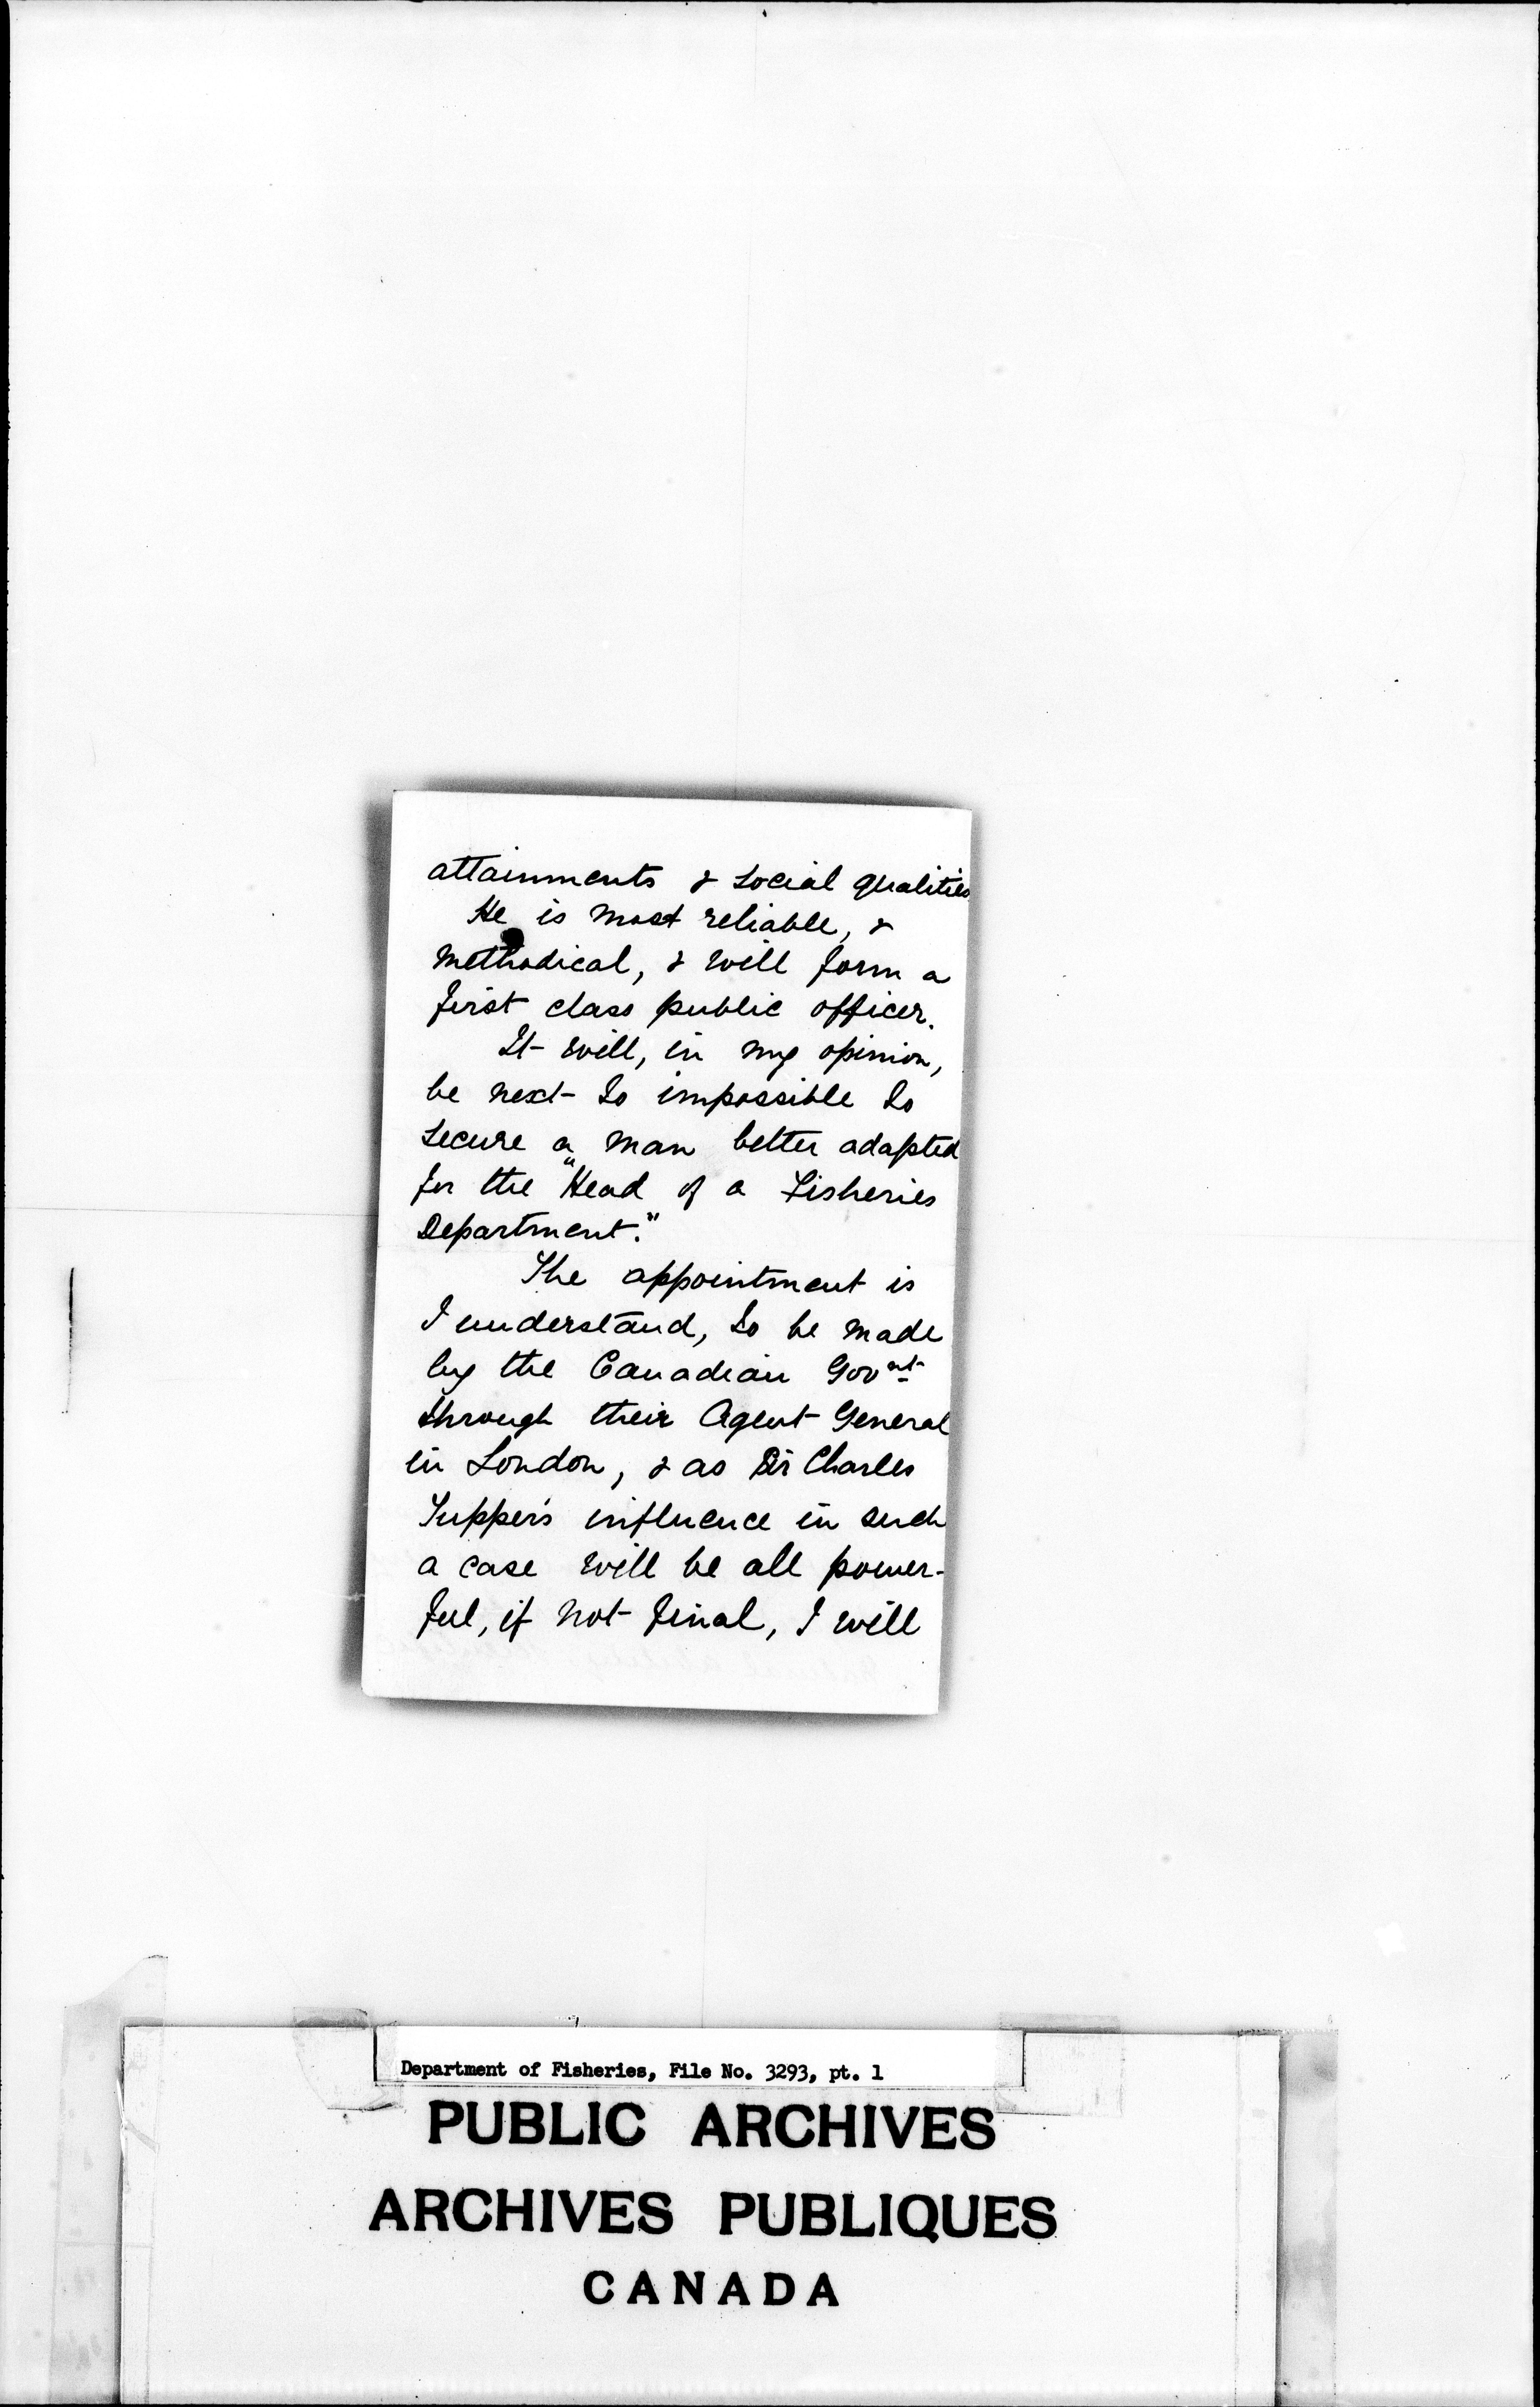 attainments & social qualities
He is most reliable, &
methodical, & will form a
first class public officer.
It will, in my opinion,
be next to impossible to
secure a man better adapted
for the "Head of a Fisheries
Department."
The appointment is
I understand, to be made
by the Canadian Govnt
through their Agent General
in London, & as Sir Charles
Tupper's influence in such
a case will be all power-
ful, if not final, I will
Department of Fisheries, File No. 3293, pt. 1
PUBLIC ARCHIVES
ARCHIVES PUBLIQUES
CANADA